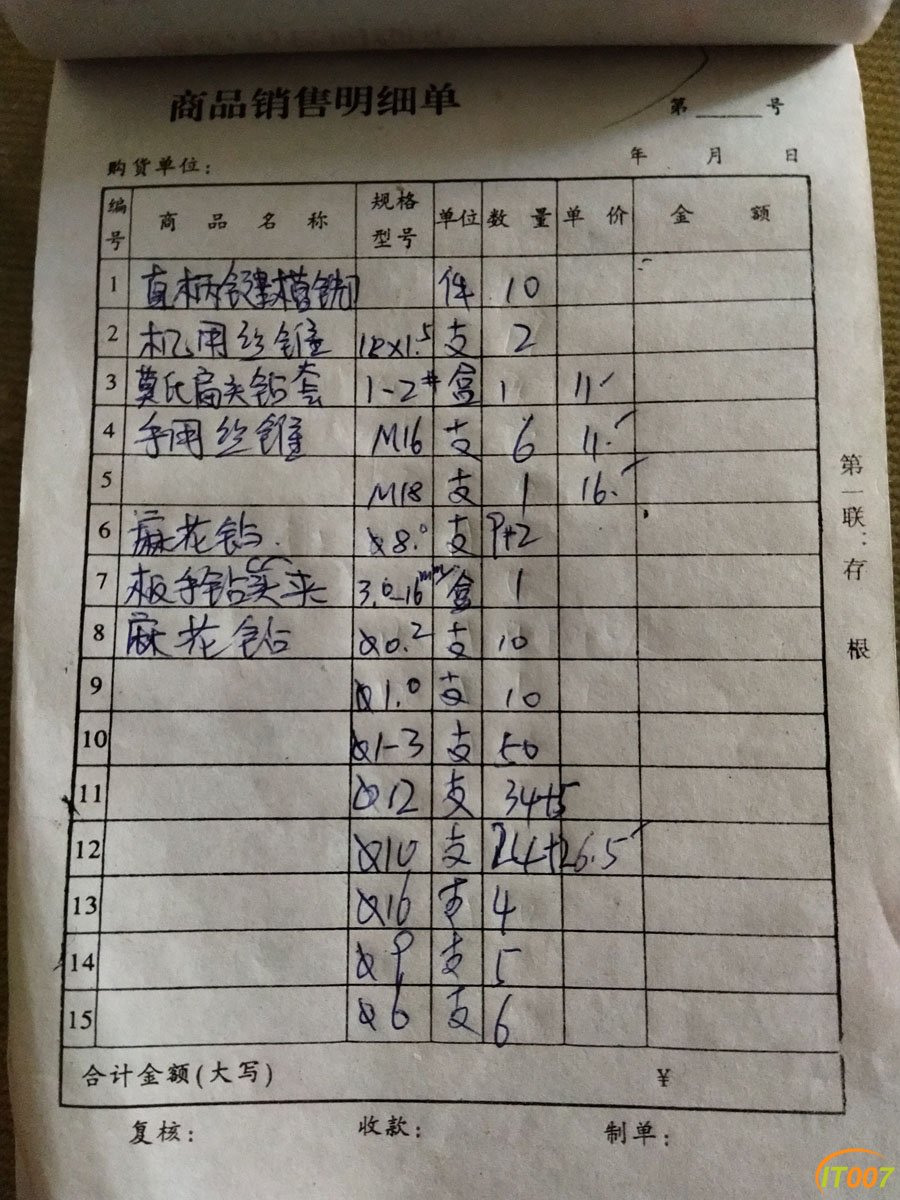 商品销售明细单
第 号
购货单位: 年 月 日
编号 商品名称 规格型号 单位 数量 单价 金额
1 直柄键槽铣刀 件 10
2 机用丝锥 18x1.5 支 2
3 莫氏扁头钻套 1-2# 盒 1 11
4 手用丝锥 M16 支 6 11.
5 M18 支 1 16.
6 麻花钻. 8.0 支 9+2
7 板手钻夹 3.0-16mm 盒 1
8 麻花钻 0.2 支 10
9 1.0 支 10
10 1-3 支 50
11 12 支 34+5
12 10 支 6.5
13 16 支 4
14 9 支 5
15 6 支 6
合计金额(大写) ¥
复核: 收款: 制单:
第一联:存根
IT007